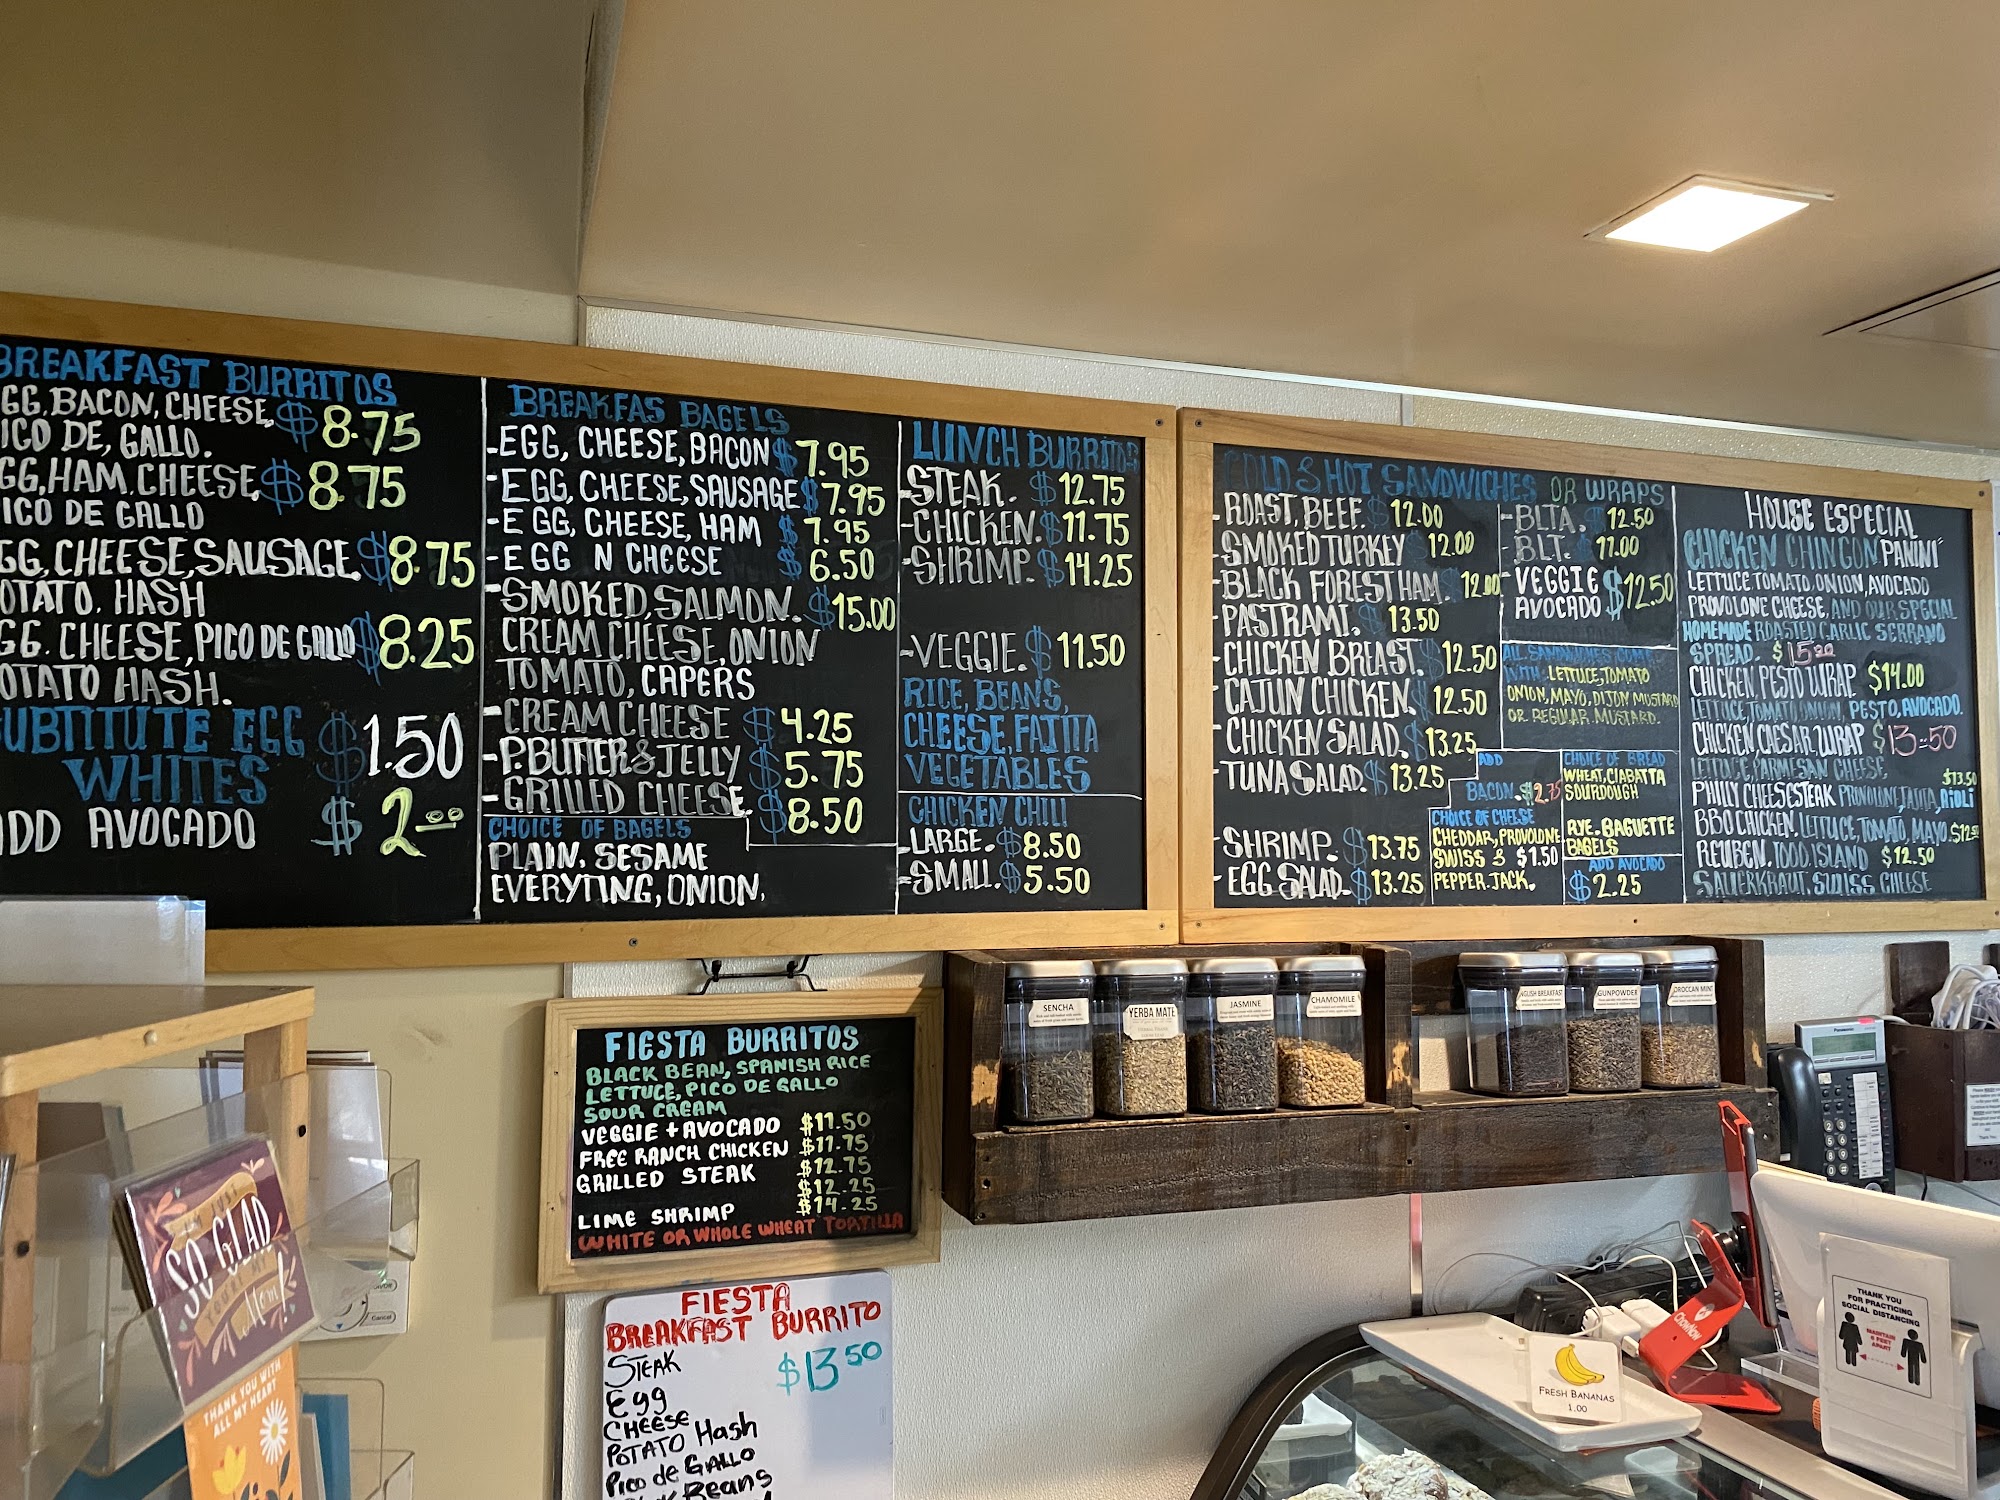 BREAKFAST BURRITOS
GG, BACON, CHEESE, $8.75
ICO DE, GALLO.
GG, HAM, CHEESE, $8.75
ICO DE GALLO
GG, CHEESE, SAUSAGE, $8.75
OTATO. HASH
GG. CHEESE, PICO DE GALLO $8.25
OTATO HASH.
UBTITUTE EGG $1.50
WHITES
ADD AVOCADO $2.00
BREAKFAS BAGELS
-EGG, CHEESE, BACON $7.95
-EGG, CHEESE, SAUSAGE $7.95
-EGG, CHEESE, HAM $7.95
-EGG N CHEESE $6.50
-SMOKED, SALMON. $15.00
CREAM CHEESE, ONION
TOMATO, CAPERS
-CREAM CHEESE $4.25
-P.BUTTER & JELLY $5.75
-GRILLED CHEESE. $8.50
CHOICE OF BAGELS
PLAIN, SESAME
EVERYTING, ONION,
LUNCH BURRITOS
-STEAK. $12.75
-CHICKEN. $11.75
-SHRIMP. $14.25
-VEGGIE. $11.50
RICE, BEAN'S,
CHEESE, FAJITA
VEGETABLES
CHICKEN CHILI
-LARGE. $8.50
-SMALL. $5.50
COLD & HOT SANDWICHES OR WRAPS
-ROAST, BEEF. $12.00
-SMOKED TURKEY $12.00
-BLACK FOREST HAM. $12.00
-PASTRAMI. $13.50
-CHICKEN BREAST. $12.50
-CAJUN CHICKEN. $12.50
-CHICKEN SALAD. $13.25
-TUNA SALAD. $13.25
-SHRIMP. $13.75
-EGG SALAD. $13.25
-BLTA. $12.50
-BLT. $11.00
-VEGGIE $12.50
AVOCADO
ALL SANDWICHES COME
WITH: LETTUCE, TOMATO
ONION, MAYO, DIJON MUSTARD
OR REGULAR MUSTARD.
ADD
BACON. $2.75
CHOICE OF CHEESE
CHEDDAR, PROVOLONE
SWISS & $1.50
PEPPER JACK.
CHOICE OF BREAD
WHEAT, CIABATTA
SOURDOUGH
RYE. BAGUETTE
BAGELS
ADD AVOCADO
$2.25
HOUSE ESPECIAL
CHICKEN CHINGON PANINI
LETTUCE, TOMATO, ONION, AVOCADO
PROVOLONE CHEESE, AND OUR SPECIAL
HOMEMADE ROASTED GARLIC SERRANO
SPREAD. $15.00
CHICKEN, PESTO WRAP $14.00
LETTUCE, TOMATO, ONION, PESTO, AVOCADO.
CHICKEN, CAESAR, WRAP $13.50
LETTUCE, PARMESAN CHEESE,
PHILLY CHEESESTEAK PROVOLONE, FAJITA, AIOLI $13.50
BBQ CHICKEN. LETTUCE, TOMATO, MAYO. $12.50
REUBEN. 1000, ISLAND $12.50
SAUERKRAUT, SWISS CHEESE
SENCHA
YERBA MATE
JASMINE
CHAMOMILE
NGLISH BREAKFAST
GUNPOWDER
OROCCAN MINT
FIESTA BURRITOS
BLACK BEAN, SPANISH RICE
LETTUCE, PICO DE GALLO
SOUR CREAM
VEGGIE + AVOCADO $11.50
FREE RANCH CHICKEN $11.75
GRILLED STEAK $12.75
$12.25
LIME SHRIMP $14.25
WHITE OR WHOLE WHEAT TORTILLA
FIESTA
BREAKFAST BURRITO
STEAK $13.50
Egg
CHEESE
POTATO Hash
Pico de GALLO
Beans
SO GLAD
YOU'RE MY
Mom!
THANK YOU WITH
ALL MY HEART
Panasonic
Cancel
CHOWNOW
FRESH BANANAS
1.00
THANK YOU
FOR PRACTICING
SOCIAL DISTANCING
MAINTAIN
6 FEET
APART